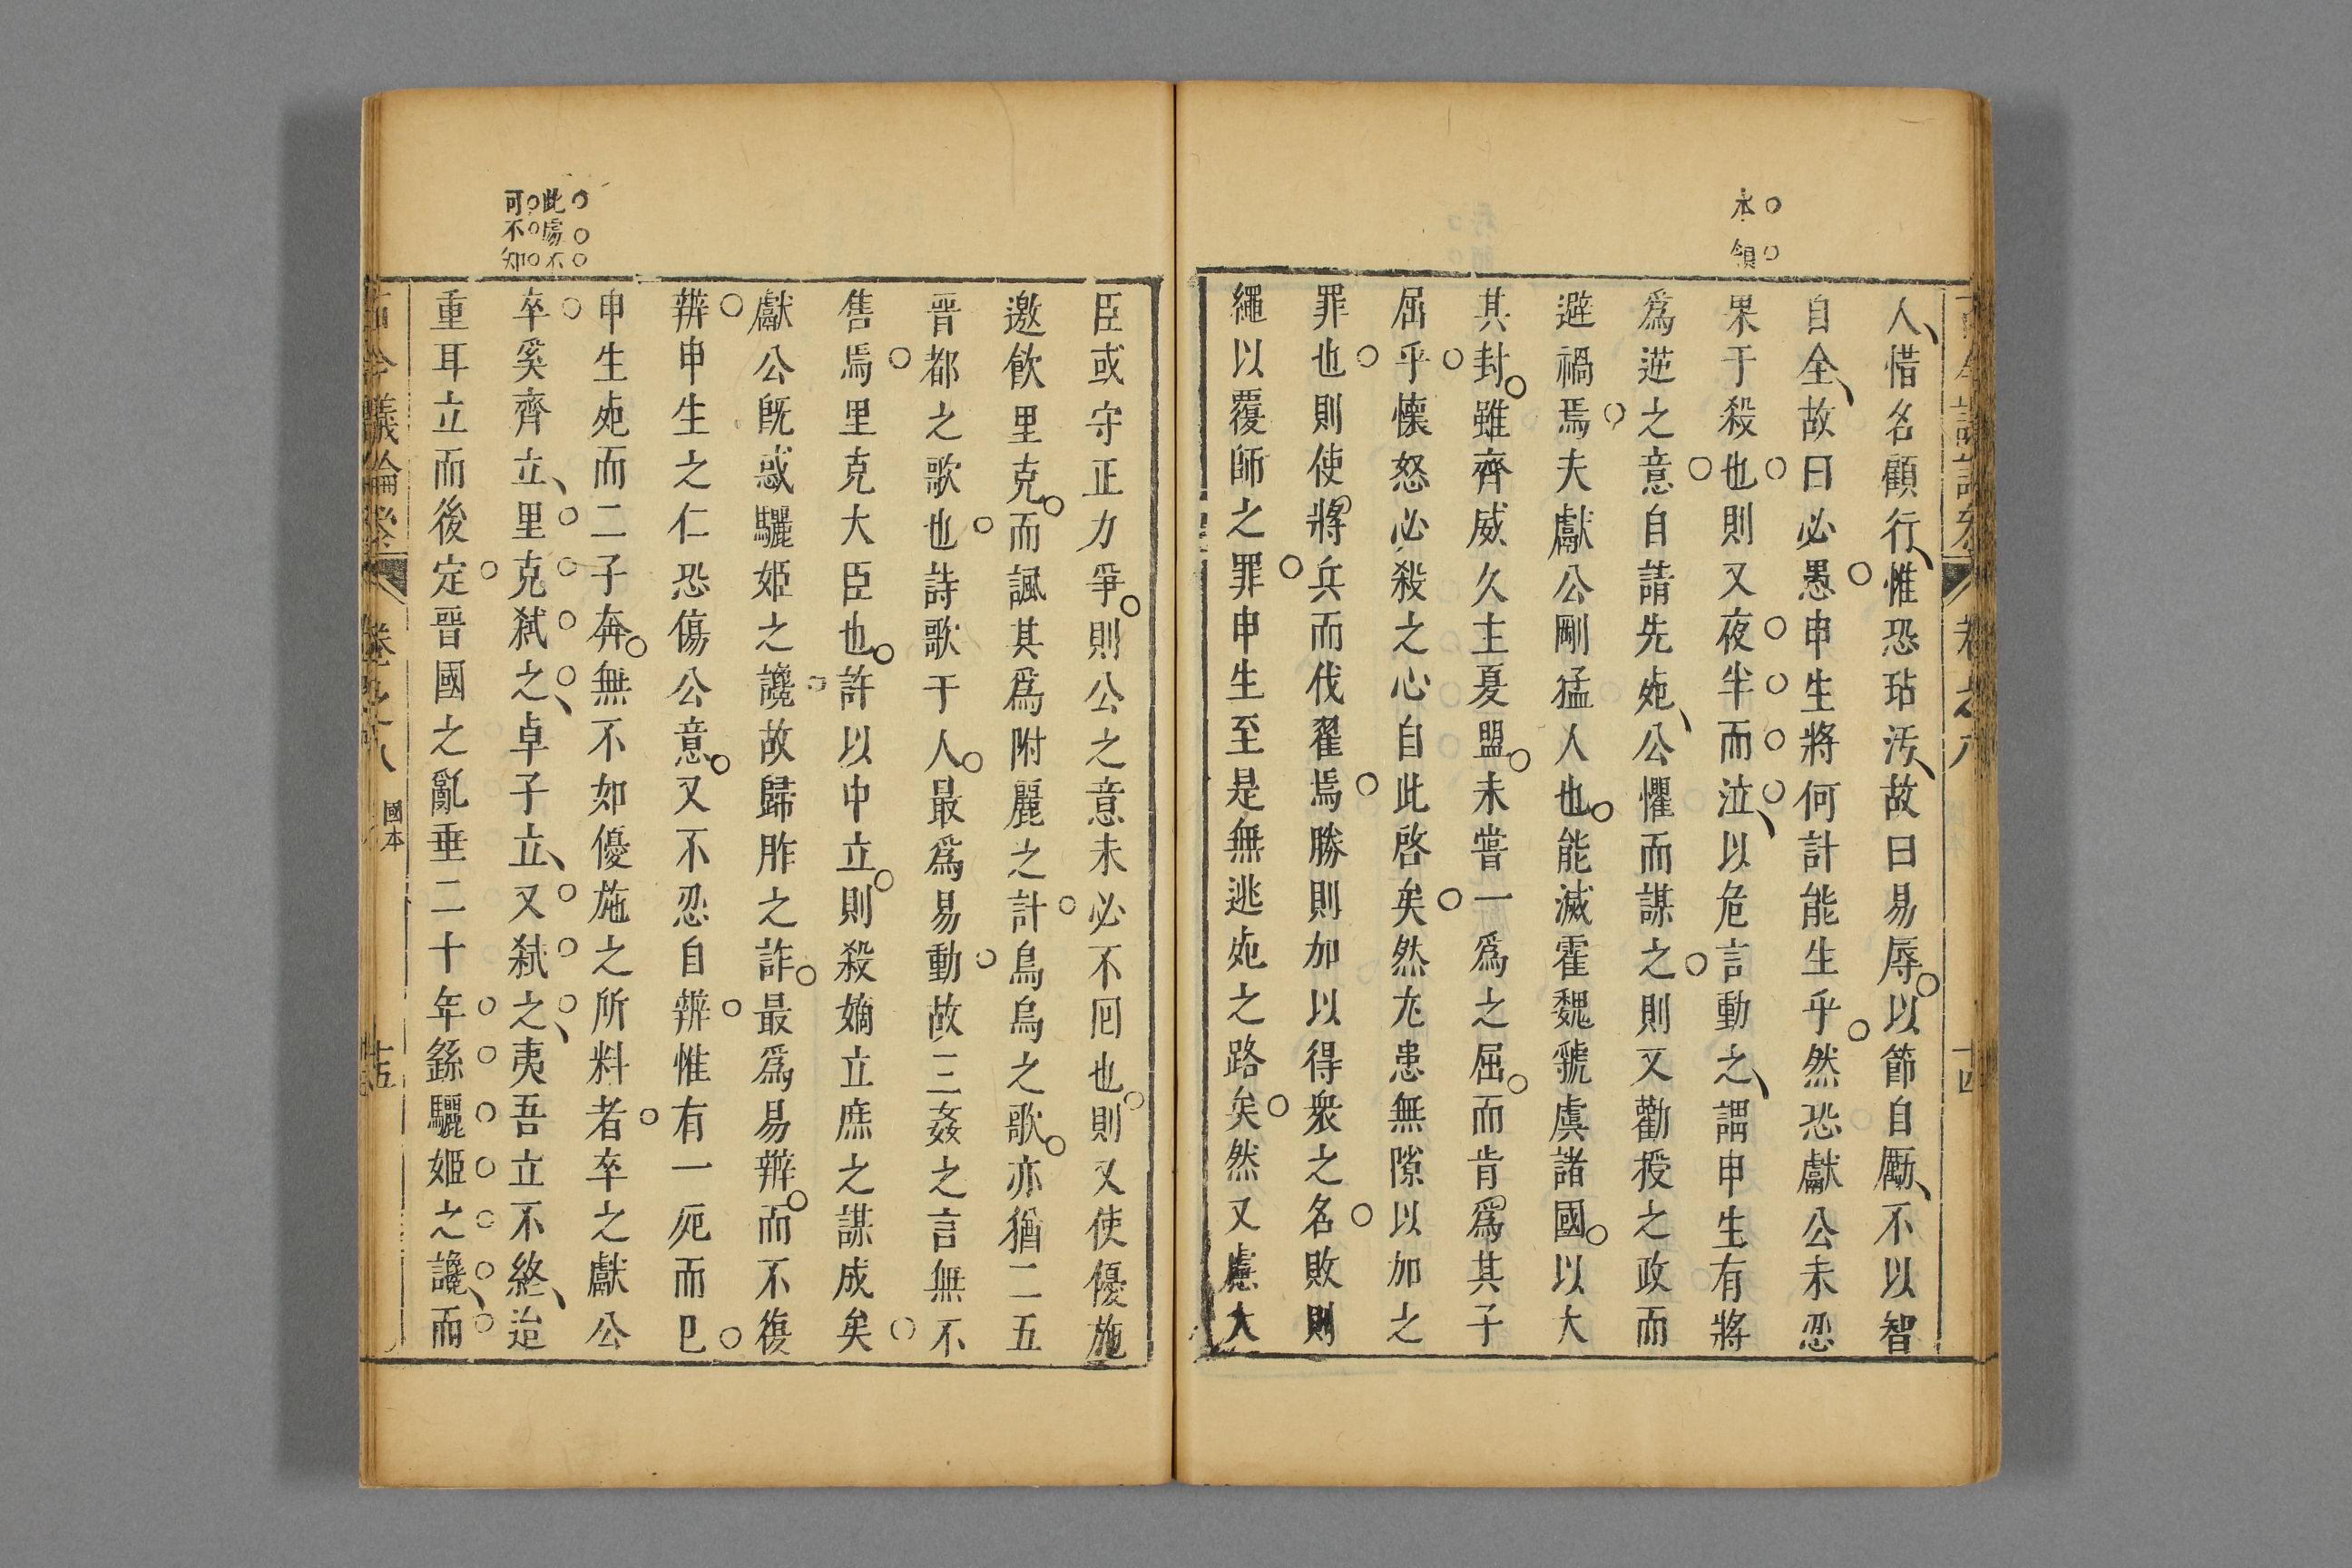 永領
人惜名顧行惟恐玷汚故曰易辱以節自厲不以智
自全故曰必愚申生將何計能生乎然恐獻公未忍
果于殺也則又夜半而泣以危言動之謂申生有將
爲逆之意自請先死公懼而謀之則又勸授之政而
避禍焉夫獻公剛猛人也能滅霍魏虢虞諸國以大
其封雖齊威久主夏盟未嘗一爲之屈而肯爲其子
屈乎懷怒必殺之心自此啓矣然尤患無隙以加之
罪也則使將兵而伐翟焉勝則加以得衆之名敗則
繩以覆師之罪申生至是無逃死之路矣然又慮大
臣或守正力爭則公之意未必不囘也則又使優施
邀飲里克而諷其爲附麗之計鳥烏之歌亦猶二五
晉都之歌也詩歌于人最爲易動故三姦之言無不
售焉里克大臣也許以中立則殺嫡立庶之謀成矣
獻公旣惑驪姬之讒故歸胙之詐最爲易辦而不復
辨申生之仁恐傷公意又不忍自辨惟有一死而已
申生死而二子奔無不如優施之所料者卒之獻公
此處不
可不知
卒奚齊立里克弑之卓子立又弑之夷吾立不終迨
重耳立而後定晉國之亂垂二十年繇驪姬之讒而
古今議論參 卷之八 國本 十五